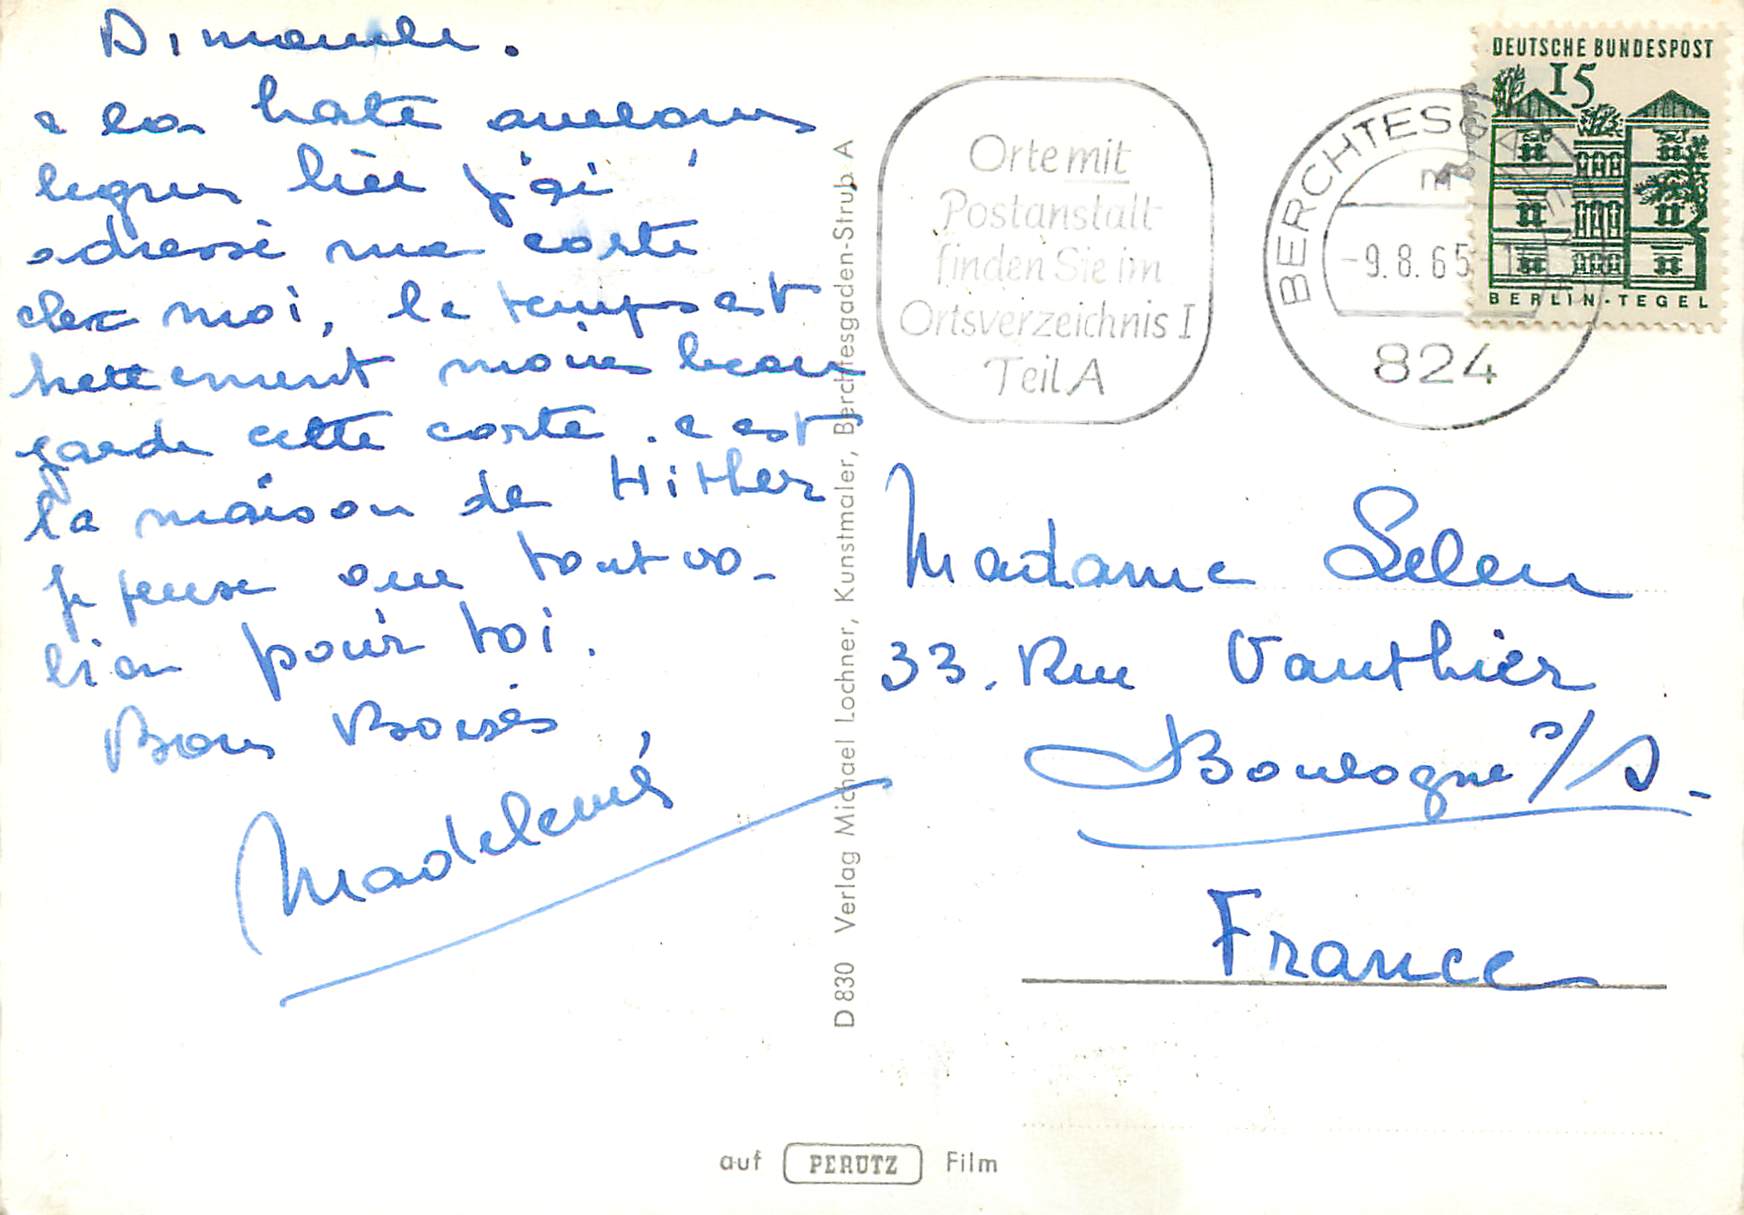 Dimanche.
a la hate quelques
lignes hier j'ai
adressé ma carte
chez moi, le temps est
nettement moins beau
garde cette carte. c est
la maison de Hithler
je pense que tout va
bien pour toi.
Bons Baisers
Madeleine
D 830 Verlag Michael Lochner, Kunstmaler, Berchtesgaden-Strub A
Orte mit
Postanstalt
finden Sie im
Ortsverzeichnis I
Teil A
BERCHTESGADEN
-9.8.65
824
DEUTSCHE BUNDESPOST
15
BERLIN-TEGEL
Madame
33. Rue Vauthier
Boulogne s/S.
France
auf PERUTZ Film